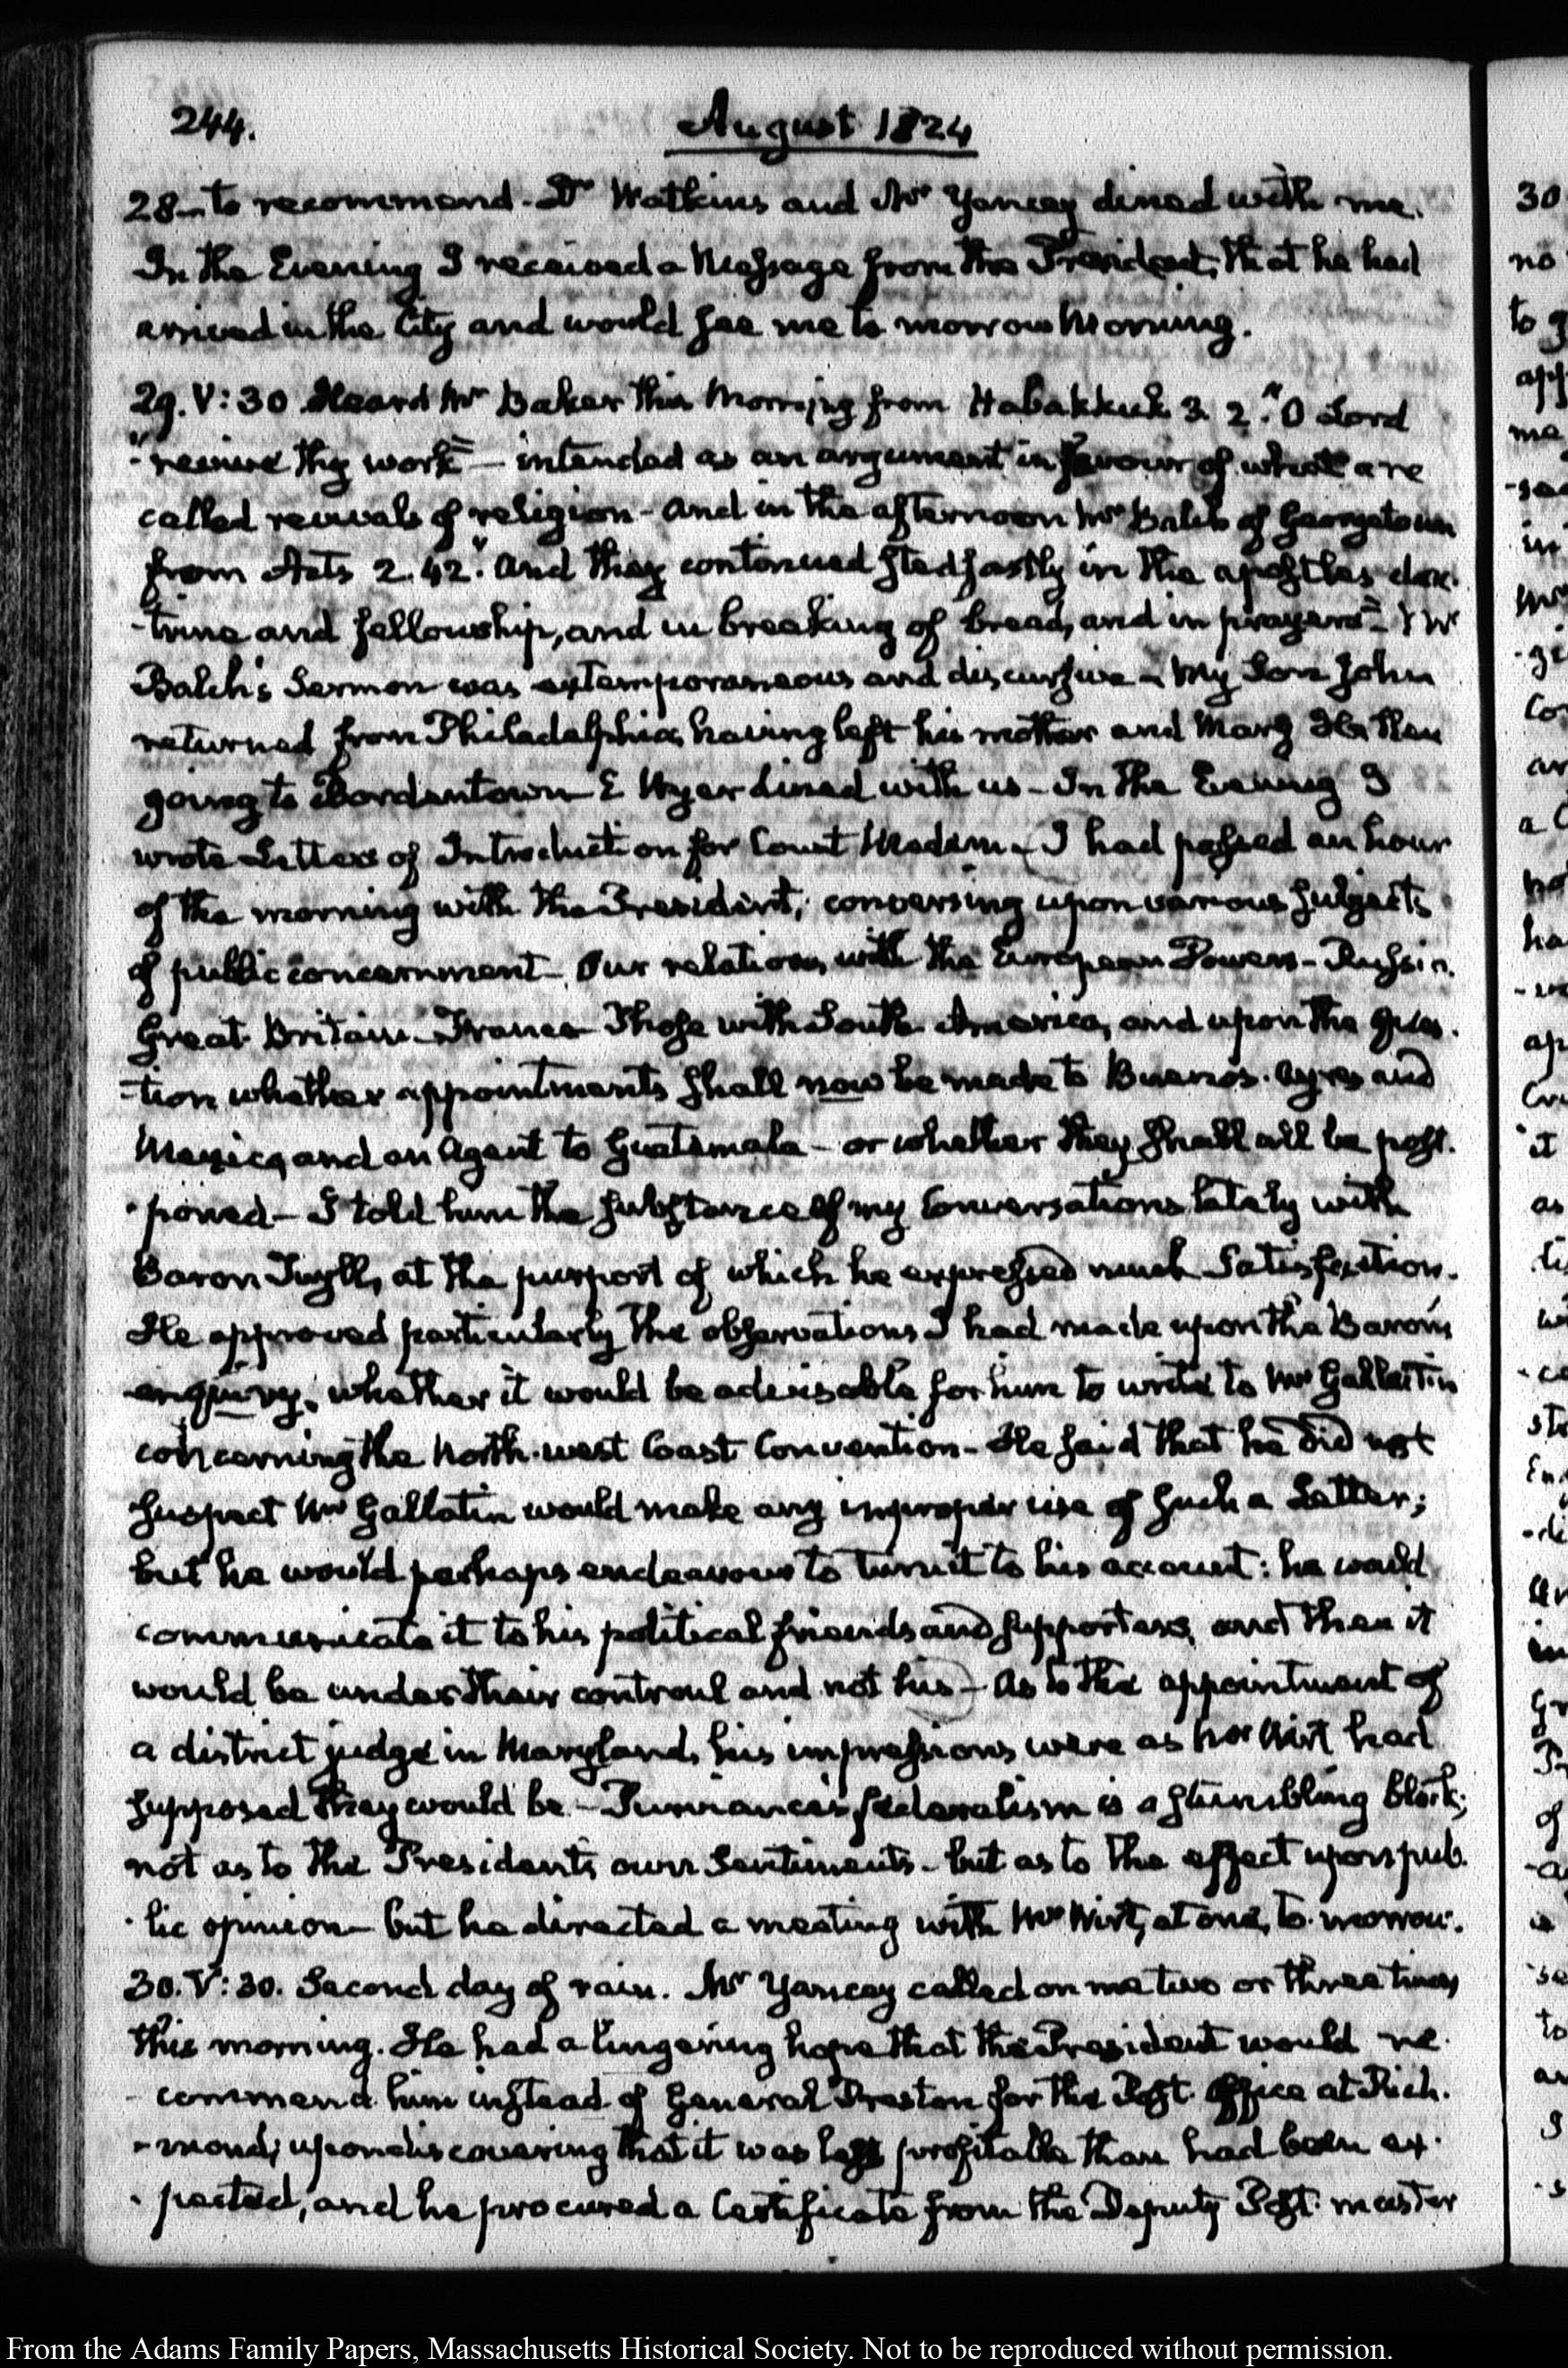 244.
August 1824
28– to recommend. Dr Watkins and Mr Yancey dined with me.
In the Evening I received a Message from the President, that he had
arrived in the City and would see me to morrow Morning.
29. V:30 Heard Mr Baker this Morning from Habakkuk 3. 2. "O Lord
"revive thy work" — intended as an argument in favour of what are
called revivals of religion - And in the afternoon Mr Balch of Georgetown
from Acts 2. 42. "And they continued stedfastly in the apostles doc-
-trine and fellowship, and in breaking of bread, and in prayers" - Mr
Balch's Sermon was extemporaneous and discursive - My Son John
returned from Philadelphia, having left his mother and Mary Hellen
going to Bordentown - E Wyer dined with us - In the Evening I
wrote Letters of Introduction for Count Medem - I had passed an hour
of the morning with the President, conversing upon various subjects
of public concernment - Our relations with the European Powers - Russia
Great-Britain - France - Those with South America, and upon the ques-
-tion whether appointments shall now be made to Buenos-Ayres and
Mexico, and an Agent to Guatemala - or whether they shall all be post-
-poned - I told him the substance of my Conversations lately with
Baron Tuyll, at the purport of which he expressed much Satisfaction.
He approved particularly the observations I had made upon the Baron's
enquiry, whether it would be adviseable for him to write to Mr Gallatin
concerning the North-west Coast Convention - He said that he did not
suspect Mr Gallatin would make any improper use of such a Letter;
but he would perhaps endeavour to turn it to his account: he would
communicate it to his political friends and supporters, and then it
would be under their controul and not his - As to the appointment of
a district judge in Maryland, his impressions were as Mr Wirt had
supposed they would be - Purviance's federalism is a stumbling block;
not as to the President's own Sentiments - but as to the effect upon pub-
-lic opinion - but he directed a meeting with Mr Wirt, at one, to-morrow.
30. V:30. Second day of rain. Mr Yancey called on me two or three times
this morning. He had a lingering hope that the President would re-
-commend him instead of General Preston for the Post-Office at Rich-
-mond; upon discovering that it was less profitable than had been ex-
-pected, and he procured a Certificate from the Deputy Post-master
From the Adams Family Papers, Massachusetts Historical Society. Not to be reproduced without permission.